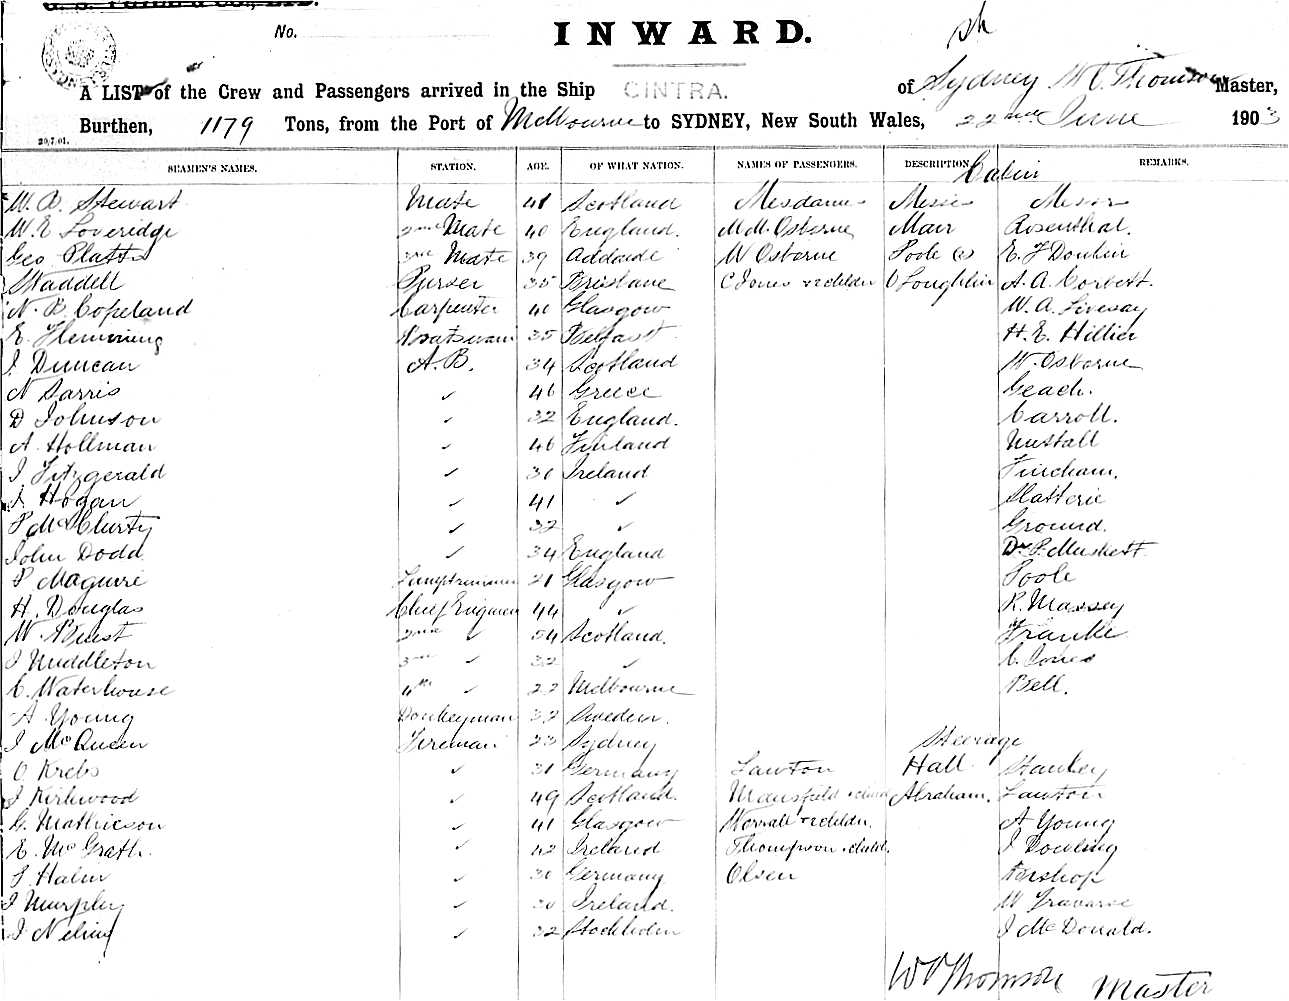 No. INWARD.
A LIST of the Crew and Passengers arrived in the Ship CINTRA. of Sydney W. C. Thomson Master,
Burthen, 1179 Tons, from the Port of Melbourne to SYDNEY, New South Wales, 22nd June 1903
20.7.01.
SEAMEN'S NAMES. STATION. AGE. OF WHAT NATION. NAMES OF PASSENGERS. DESCRIPTION. REMARKS.
Cabin
W. A. Stewart Mate 41 Scotland Mesdames Misses Messrs
W. E. Loveridge 2nd Mate 40 England. Osborne Marr Rosenthal.
Geo Platts 3rd Mate 39 Adelaide W Osborne Poole (2) E. J Donkin
Waddell Purser 35 Brisbane C Jones & 2 childn O'Loughlin A. A. Corbett.
N. B. Copeland Carpenter 40 Glasgow W. A. Livesay
E. Flemming Boatswain 35 Belfast H. E. Hillier
J. Duncan A.B. 34 Scotland W. Osborne
N Sarris ✓ 46 Greece Geach.
D Johnson ✓ 32 England. Carroll.
A. Hollman ✓ 46 Finland Nustall
J. Fitzgerald ✓ 30 Ireland Fincham.
J. Hogan ✓ 41 ✓ Slatterie
P McClurty ✓ 32 ✓ Ground.
John Dodd ✓ 34 England Dr P. Muskett
P Maguire Lamptrimmer 21 Glasgow Poole
H. Douglas Chief Engineer 44 ✓ R. Massey
W. Brust 2nd ✓ 54 Scotland. Franke
J Middleton 3rd ✓ 32 ✓ C. Jones
C. Waterhouse 4th ✓ 22 Melbourne Bell.
A. Young Donkeyman 32 Sweden.
J McQueen Fireman 23 Sydney Steerage
O Krebs ✓ 31 Germany Lawton Hall Stanley
J Kirkwood ✓ 49 Scotland. Mansfield & child Abraham. Lawton
G. Mathieson ✓ 41 Glasgow Worrall & 2 childn. A Young
E. McGrath. ✓ 42 Ireland Thompson & child. J Dowling
S. Halm ✓ 30 Germany Olsen
J Murphy ✓ 30 Ireland. W Travarse
J Nelins ✓ 32 Stockholm J McDonald.
W C Thomson Master